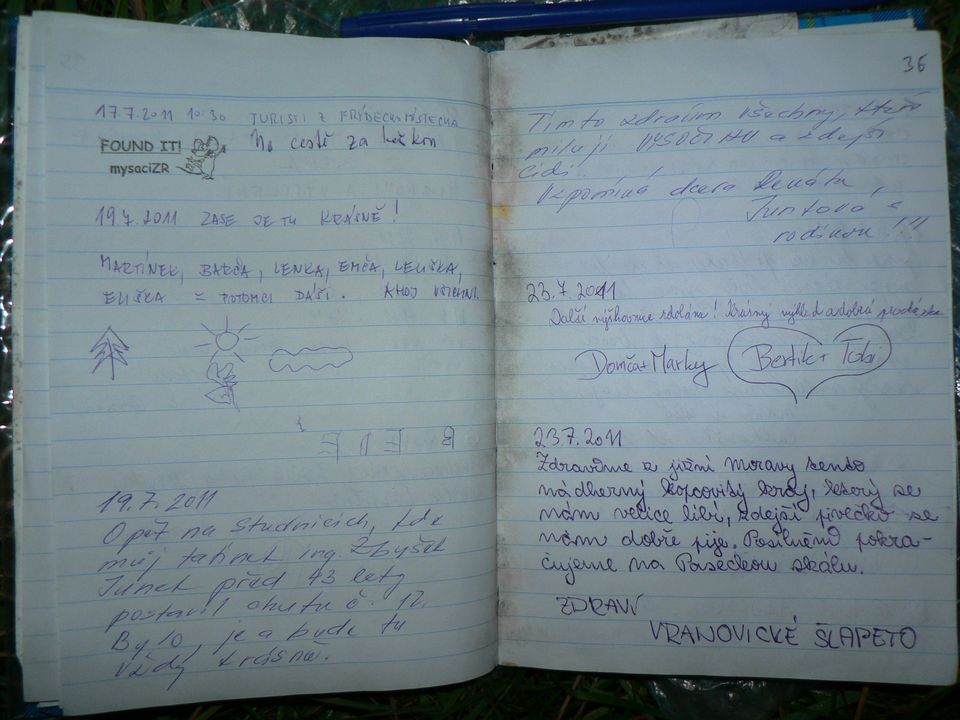 17.7.2011 10:30 TURISTI Z FRÝDECKMÍSTECKA
FOUND IT!
mysaciZR
Na cestě za
19.7.2011 ZASE JE TU KRÁSNĚ!
MARTÍNEK, BARČA, LENKA, EMČA,
ELIŠKA = POTOMCI DÁŠI. AHOJ VŠICHNI.
19.7.2011
Opět na Studnicích, kde
můj tatínek ing. Zbyšek
Junek před 43 lety
postavil chatu č. 12.
Bylo, je a bude tu
vždy krásně.
36
Tímto zdravím všechny, kteří
milují VYSOČINU a zdejší
lidi.
Vzpomíná dcera Renáta
Juntová s
rodinou!!!
23.7.2011
Další výšková zdolána! Krásný výhled a dobrá
Domča+Marky Bertík+Tobi
23.7.2011
Zdravíme z jižní Moravy tento
nádherný kopcovitý kraj, který se
nám velice líbí, zdejší pivečko se
nám dobře pije. Posilněnd pokra-
čujeme na Paseckou skálu.
ZDRAVÍ
VRANOVICKÉ ŠLAPETO